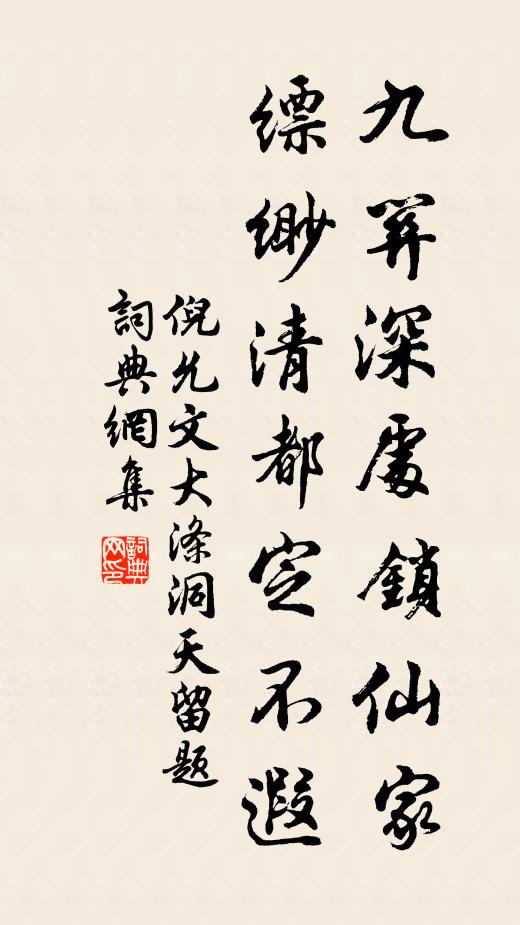 九關深處鎖仙家
縹緲清都定不遐
倪允文大滌洞天留題
詞典網集
詞典网印